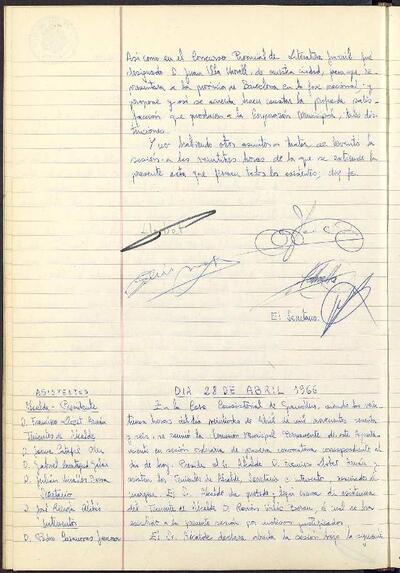 Así como en el Concurso Provincial de Literatura juvil que
designado D. Juan Vila de nuestra ciudad, para que re-
presentara a la provincia de Barcelona en la fase nacional, y
propone y así se acuerda hacer constar la profunda satis-
facción que producen a la Corporación Municipal, tales dis-
tinciones.
Y no habiendo otros asuntos a tratar, se levantó la
sesión a las veintitrés horas de la que se extiende la
presente acta que firman todos los asistentes, doy fe.
Llobet
El Secretario.
ASISTENTES
Alcalde - Presidente
D. Francisco Llobet
Tenientes de Alcalde
D. Jaime
D. Gabriel
D. Julián
Secretario
D. José
Interventor
D. Pedro Casanovas
DIA 28 DE ABRIL 1966
En la Casa Consistorial de Granollers, siendo las vein-
horas del día veintiocho de Abril de mil novecientos sesenta
y seis, se reunió la Comisión Municipal Permanente de este Ayunta-
miento en sesión ordinaria de primera convocatoria correspondiente al
día de hoy. Preside el Sr. Alcalde D. Francisco Llobet y
asisten los Tenientes de Alcalde, Secretario e Interventor reseñados al
margen. El Sr. Alcalde ha
del Teniente de Alcalde D. Ramón el cual se ha
excusado a la presente sesión por motivos justificados.
El Sr. Alcalde declara abierta la sesión bajo la siguiente